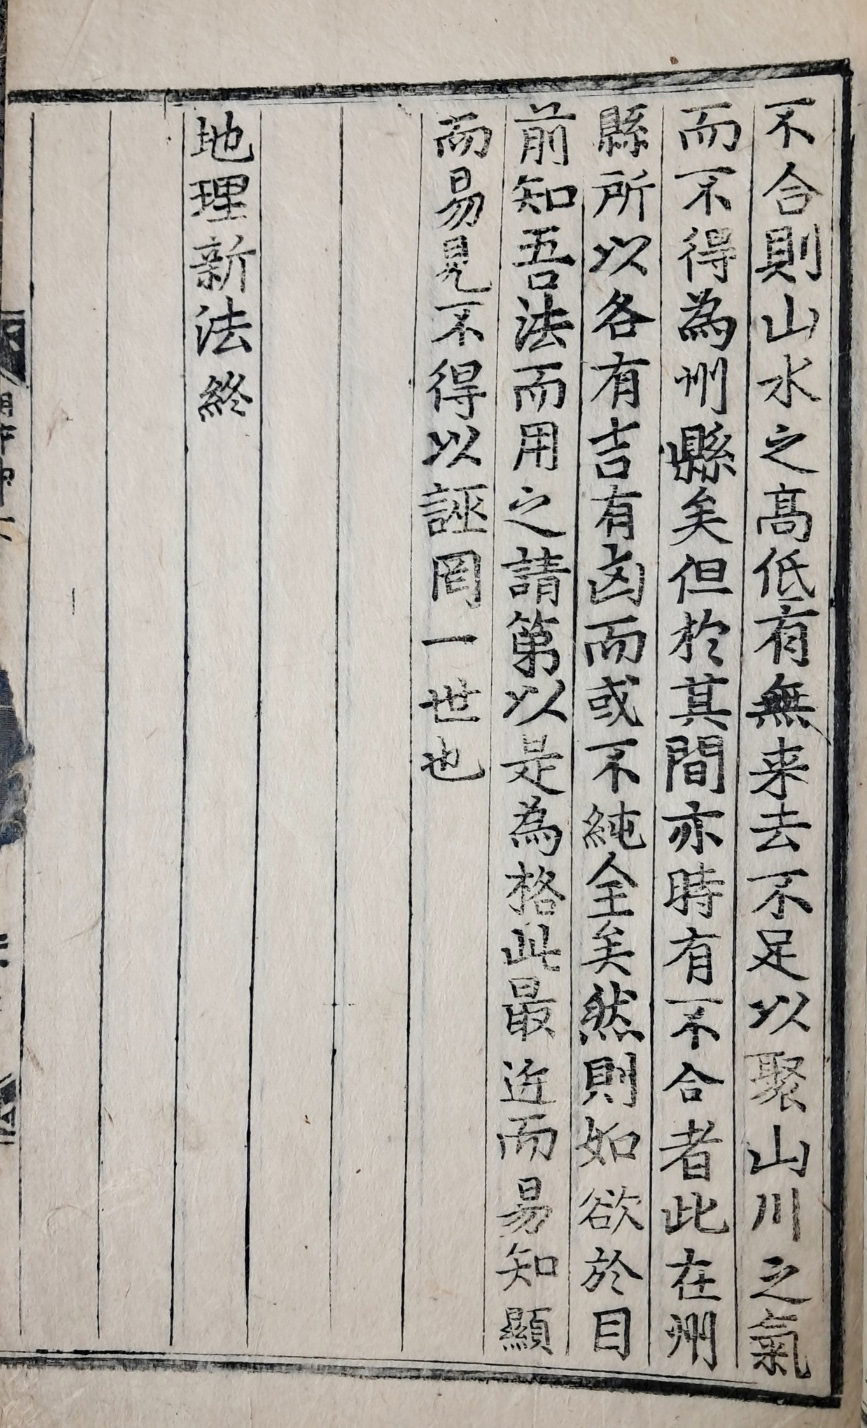 不合則山水之高低有無来去不足以聚山川之氣
而不得為州縣矣但於其間亦時有不合者此在州
縣所以各有吉有凶而或不純全矣然則如欲於目
前知吾法而用之請第以是為格此最近而易知顯
而易見不得以誣罔一世也
地理新法終